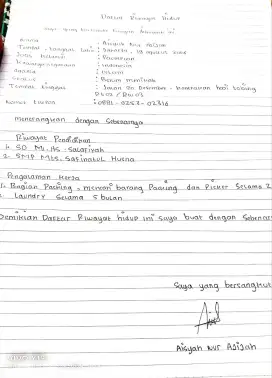 Daftar Riwayat Hidup
saya yang bertanda tangan dibawah ini
Nama : Aisyah Nur Azizah
Tempat, tanggal lahir : Jakarta, 18 agustus
Jenis kelamin : Perempuan
Kewarganegaraan : Indonesia
Agama : Islam
Status : Belum menikah
Tempat tinggal : Jalan
: 0881-0253-02316
menerangkan dengan Sebenarnya
Riwayat Pendidikan
1. SD MI. HS. Salafiyah
2. SMP Mts. Safinatul Husna
Pengalaman Kerja
1. Bagian Packing, mencari barang Packing dan Picker Selama 2
2. Laundry Selama 5 bulan
Demikian Daftar Riwayat hidup ini saya buat dengan Sebenar
Saya yang bersangkut
Aisyah Nur Azizah